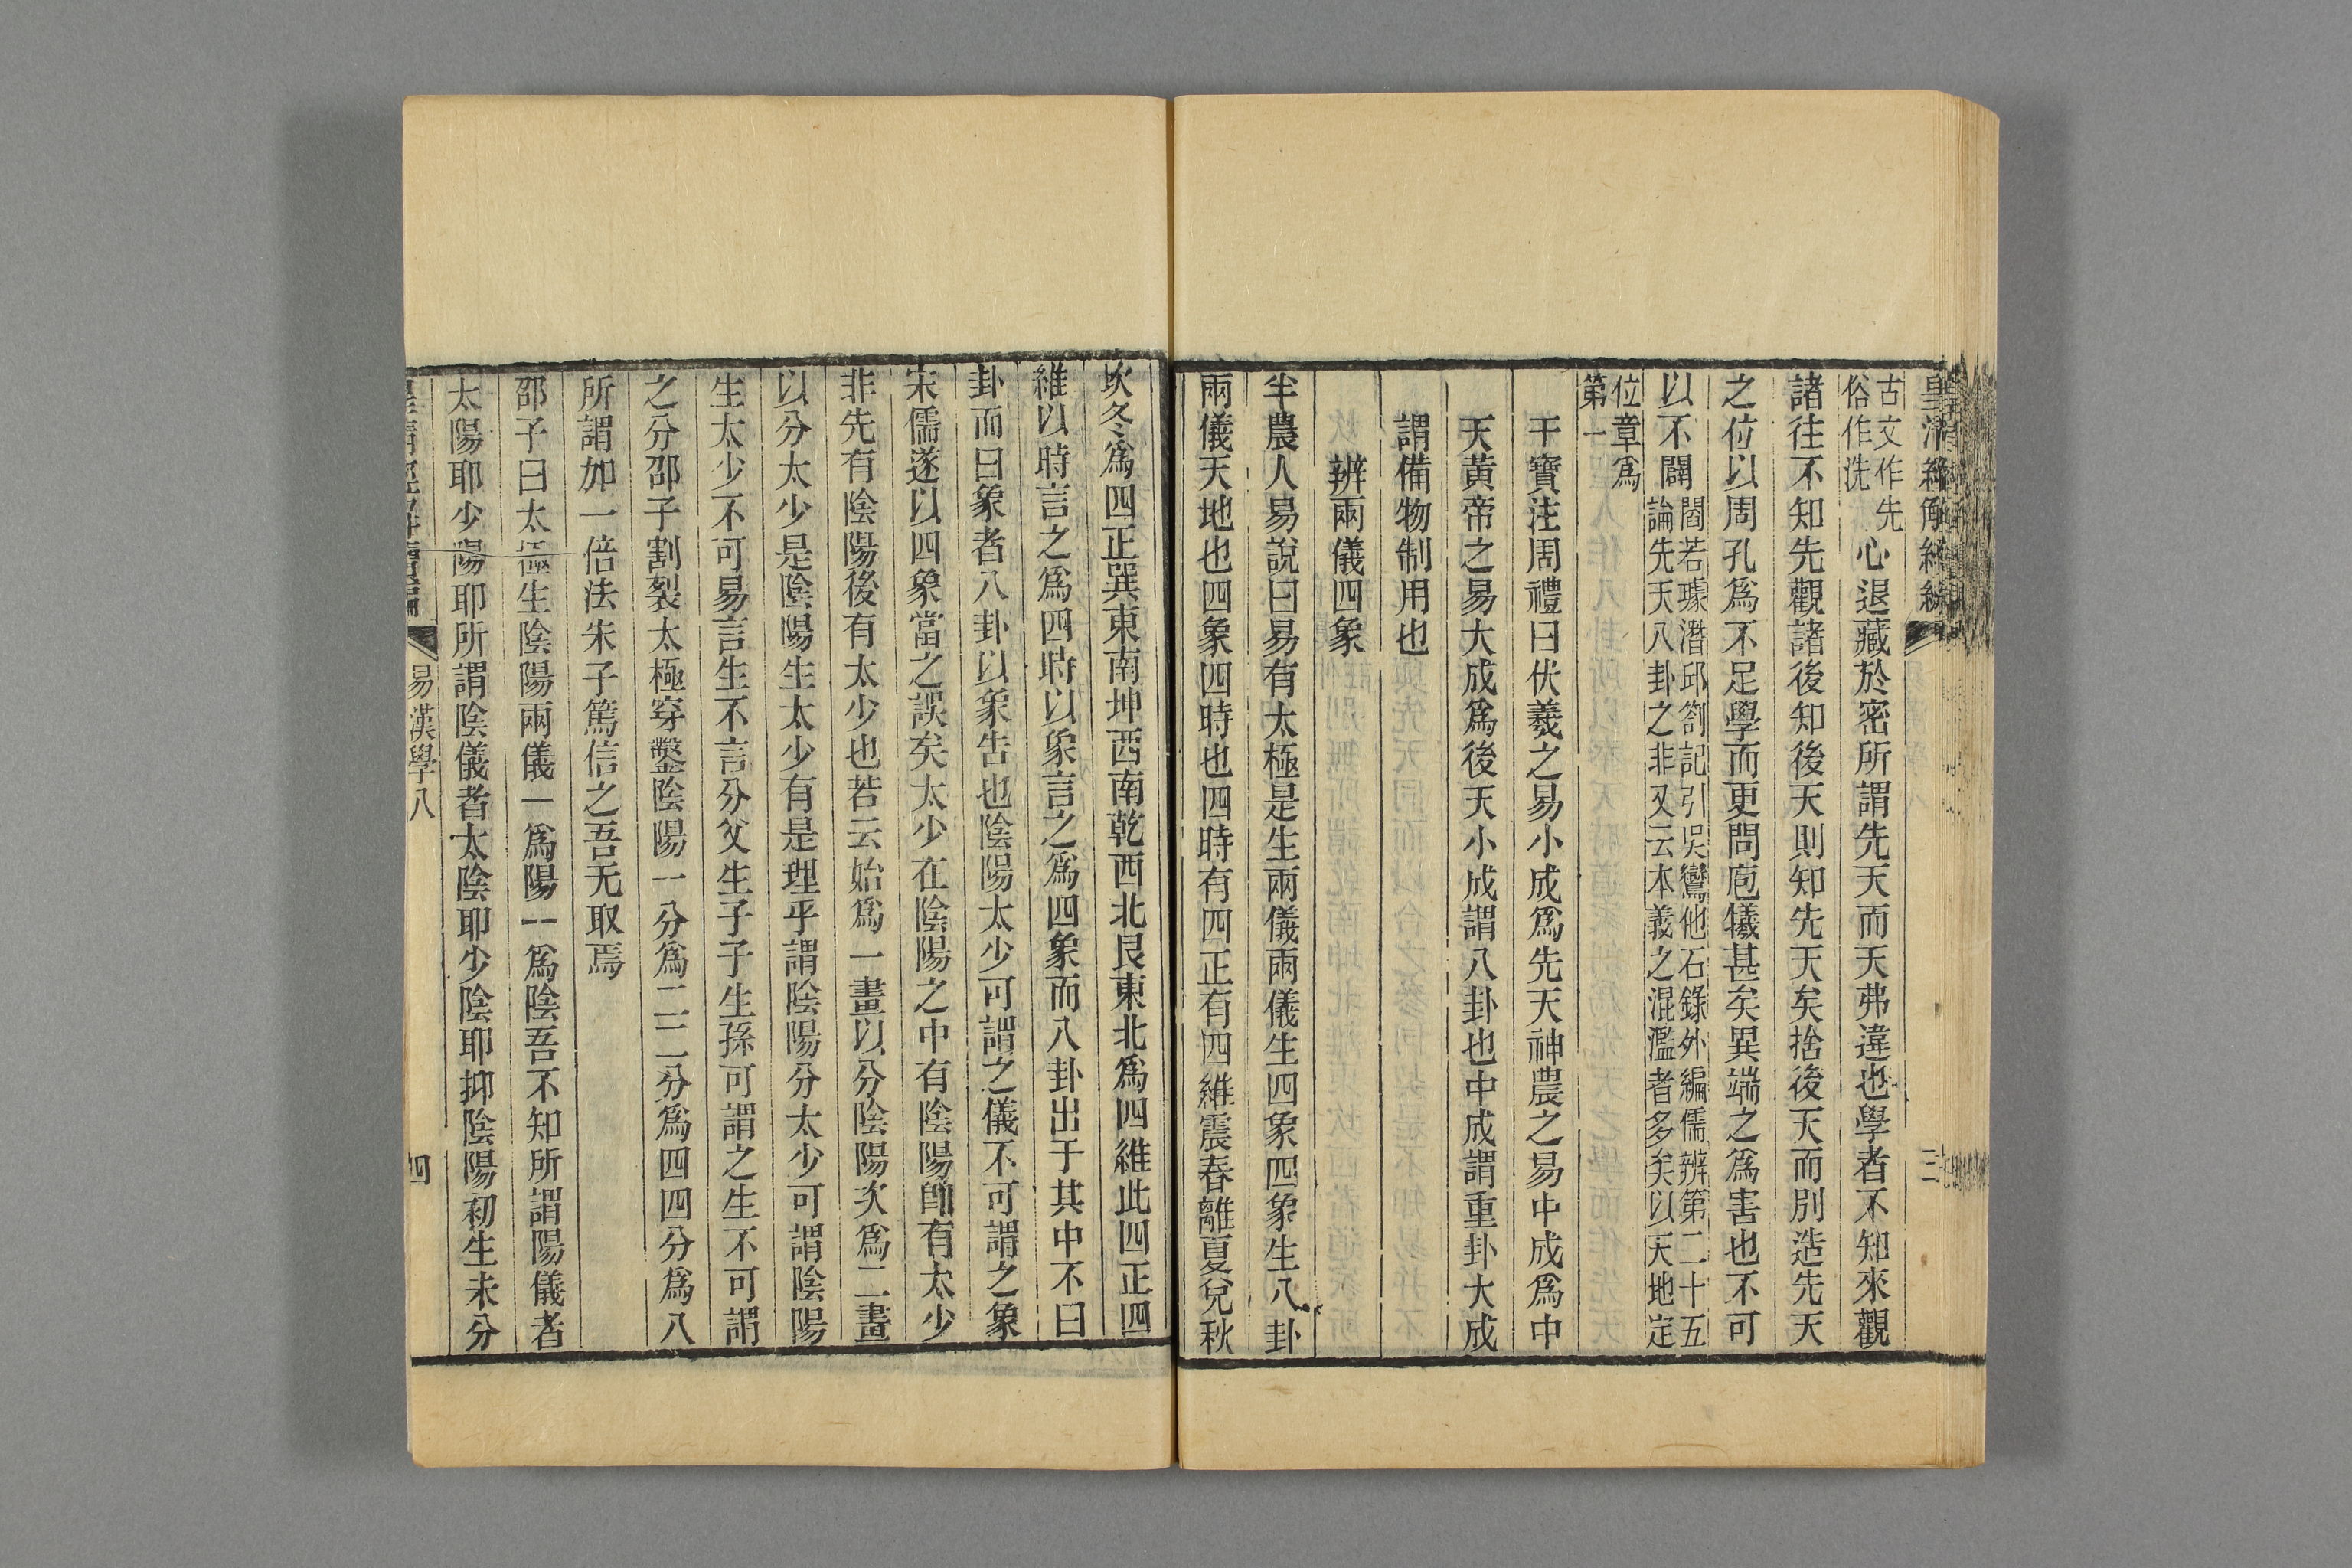 皇清經解續編
三
古文作先
俗作洗
心退藏於密所謂先天而天弗違也學者不知來觀
諸往不知先觀諸後知後天則知先天矣捨後天而別造先天
之位以周孔爲不足學而更問庖犧甚矣異端之爲害也不可
以不闢
閻若璩潛邱劄記引吳鸞他石錄外編儒辨第二十五
論先天八卦之非又云本義之混濫者多矣以天地定
位章爲
第一
干寶注周禮曰伏羲之易小成爲先天神農之易中成爲中
天黃帝之易大成爲後天小成謂八卦也中成謂重卦大成
謂備物制用也
辨兩儀四象
半農人易說曰易有太極是生兩儀兩儀生四象四象生八卦
兩儀天地也四象四時也四時有四正有四維震春離夏兌秋
坎冬爲四正巽東南坤西南乾西北艮東北爲四維此四正四
維以時言之爲四時以象言之爲四象而八卦出于其中不曰
卦而曰象者八卦以象告也陰陽太少可謂之儀不可謂之象
宋儒遂以四象當之誤矣太少在陰陽之中有陰陽卽有太少
非先有陰陽後有太少也若云始爲一畫以分陰陽次爲二畫
以分太少是陰陽生太少有是理乎謂陰陽分太少可謂陰陽
生太少不可易言生不言分父生子子生孫可謂之生不可謂
之分邵子割裂太極穿鑿陰陽一分爲二二分爲四四分爲八
所謂加一倍法朱子篤信之吾无取焉
邵子曰太極生陰陽兩儀⚊爲陽⚋爲陰吾不知所謂陽儀者
太陽耶少陽耶所謂陰儀者太陰耶少陰耶抑陰陽初生未分
皇清經解續編
易漢學八
四